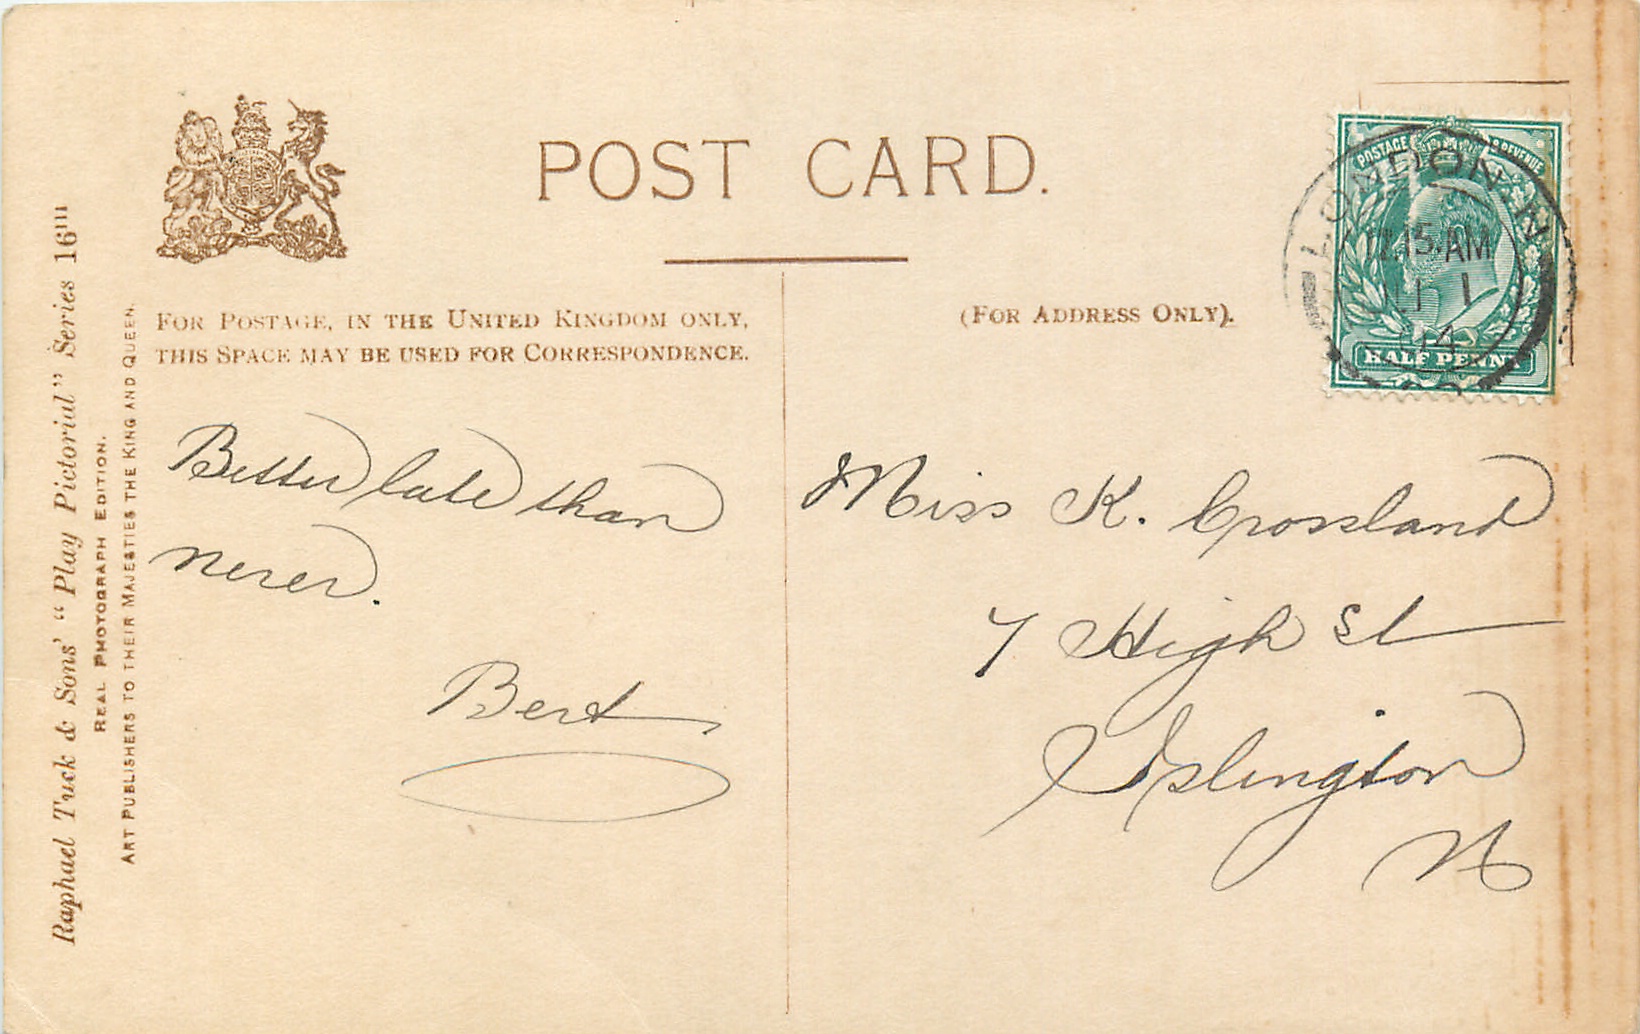 POST CARD.
FOR POSTAGE, IN THE UNITED KINGDOM ONLY,
THIS SPACE MAY BE USED FOR CORRESPONDENCE.
(FOR ADDRESS ONLY).
Raphael Tuck & Sons' "Play Pictorial" Series 16
REAL PHOTOGRAPH EDITION.
ART PUBLISHERS TO THEIR MAJESTIES THE KING AND QUEEN.
POSTAGE & REVENUE
HALF PENNY
LONDON. N.
.15.AM
1 1
Better late than
never.
Bert
Miss K. Crossland
7 High St
Islington
N